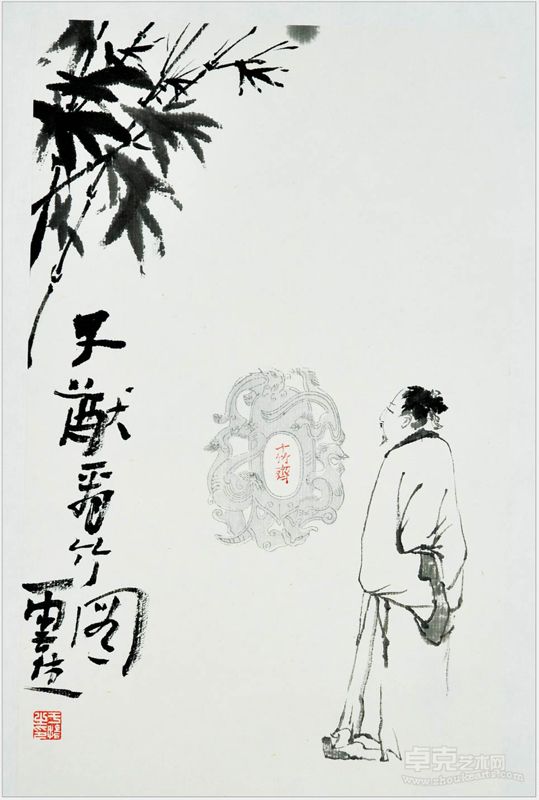 子猷看竹图
十竹齋
卓克艺术网
www.zhuokearts.com